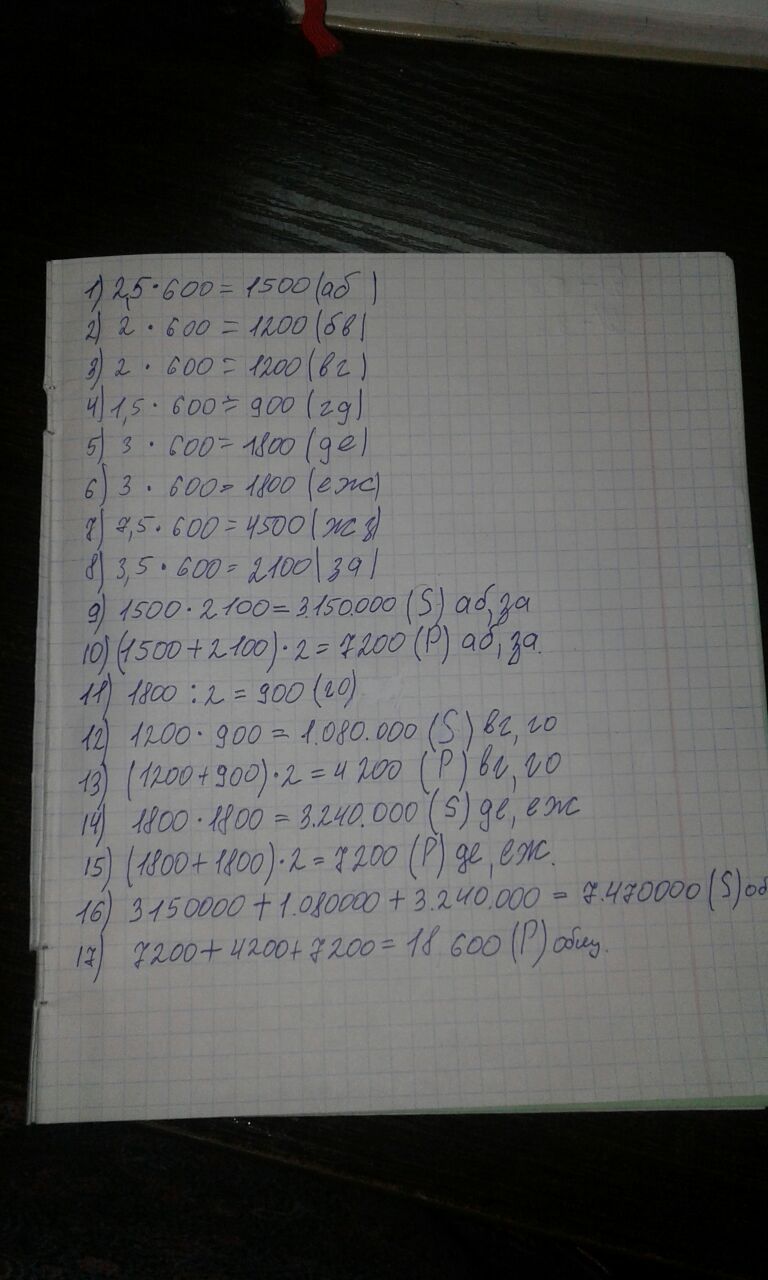 1) 2,5 · 600 = 1500 (аб)
2) 2 · 600 = 1200 (бв)
3) 2 · 600 = 1200 (вг)
4) 1,5 · 600 = 900 (гд)
5) 3 · 600 = 1800 (де)
6) 3 · 600 = 1800 (еж)
7) 7,5 · 600 = 4500 (жз)
8) 3,5 · 600 = 2100 (за)
9) 1500 · 2100 = 3.150.000 (S) аб, за
10) (1500 + 2100) · 2 = 7200 (P) аб, за.
11) 1800 : 2 = 900 (го)
12) 1200 · 900 = 1.080.000 (S) вг, го
13) (1200 + 900) · 2 = 4200 (P) вг, го
14) 1800 · 1800 = 3.240.000 (S) де, еж
15) (1800 + 1800) · 2 = 7200 (P) де, еж.
16) 3150000 + 1.080000 + 3.240.000 = 7.470000 (S) об
17) 7200 + 4200 + 7200 = 18 600 (P) общ.